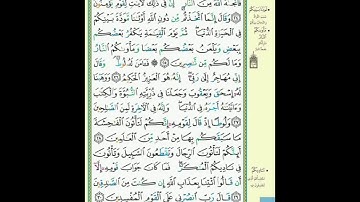 فَأَنجَىٰهُ ٱللَّهُ مِنَ ٱلنَّارِ إِنَّ فِى ذَٰلِكَ لَـَٔايَـٰتٍ لِّقَوْمٍ يُؤْمِنُونَ
٢٤ وَقَالَ إِنَّمَا ٱتَّخَذْتُم مِّن دُونِ ٱللَّهِ أَوْثَـٰنًا مَّوَدَّةَ بَيْنِكُمْ
فِى ٱلْحَيَوٰةِ ٱلدُّنْيَا ثُمَّ يَوْمَ ٱلْقِيَـٰمَةِ يَكْفُرُ بَعْضُكُم
بِبَعْضٍ وَيَلْعَنُ بَعْضُكُم بَعْضًا وَمَأْوَىٰكُمُ ٱلنَّارُ
وَمَا لَكُم مِّن نَّـٰصِرِينَ ٢٥ فَـَٔامَنَ لَهُۥ لُوطٌ وَقَالَ
إِنِّى مُهَاجِرٌ إِلَىٰ رَبِّىٓ إِنَّهُۥ هُوَ ٱلْعَزِيزُ ٱلْحَكِيمُ ٢٦ وَوَهَبْنَا
لَهُۥٓ إِسْحَـٰقَ وَيَعْقُوبَ وَجَعَلْنَا فِى ذُرِّيَّتِهِ ٱلنُّبُوَّةَ وَٱلْكِتَـٰبَ
وَءَاتَيْنَـٰهُ أَجْرَهُۥ فِى ٱلدُّنْيَا وَإِنَّهُۥ فِى ٱلْـَٔاخِرَةِ لَمِنَ ٱلصَّـٰلِحِينَ
٢٧ وَلُوطًا إِذْ قَالَ لِقَوْمِهِۦٓ إِنَّكُمْ لَتَأْتُونَ ٱلْفَـٰحِشَةَ
مَا سَبَقَكُم بِهَا مِنْ أَحَدٍ مِّنَ ٱلْعَـٰلَمِينَ ٢٨
أَئِنَّكُمْ لَتَأْتُونَ ٱلرِّجَالَ وَتَقْطَعُونَ ٱلسَّبِيلَ وَتَأْتُونَ
فِى نَادِيكُمُ ٱلْمُنكَرَ فَمَا كَانَ جَوَابَ قَوْمِهِۦٓ إِلَّآ
أَن قَالُوا۟ ٱئْتِنَا بِعَذَابِ ٱللَّهِ إِن كُنتَ مِنَ ٱلصَّـٰدِقِينَ
٢٩ قَالَ رَبِّ ٱنصُرْنِى عَلَى ٱلْقَوْمِ ٱلْمُفْسِدِينَ ٣٠